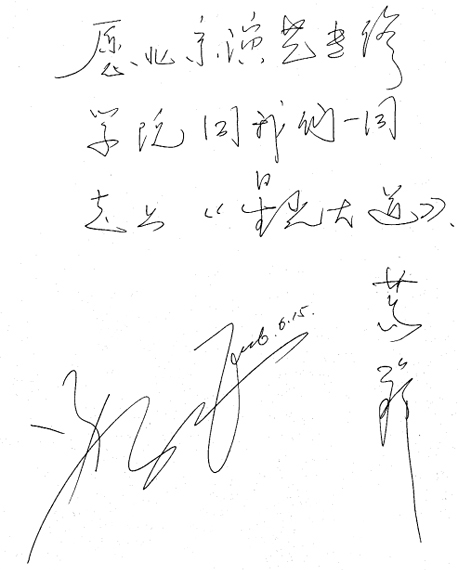 愿北京演艺专修
学院同我们一同
走上《星光大道》.
2006.6.15.